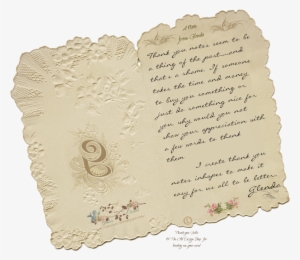 A Note
from Glenda
Thank you notes seem to be
a thing of the past—and
that's a shame. If someone
takes the time and money
to buy you something or
just do something nice for
you why would you not
show your appreciation with
a few words to thank
them.
I create thank you
notes inhopes to make it
easy for us all to be better.
Glenda